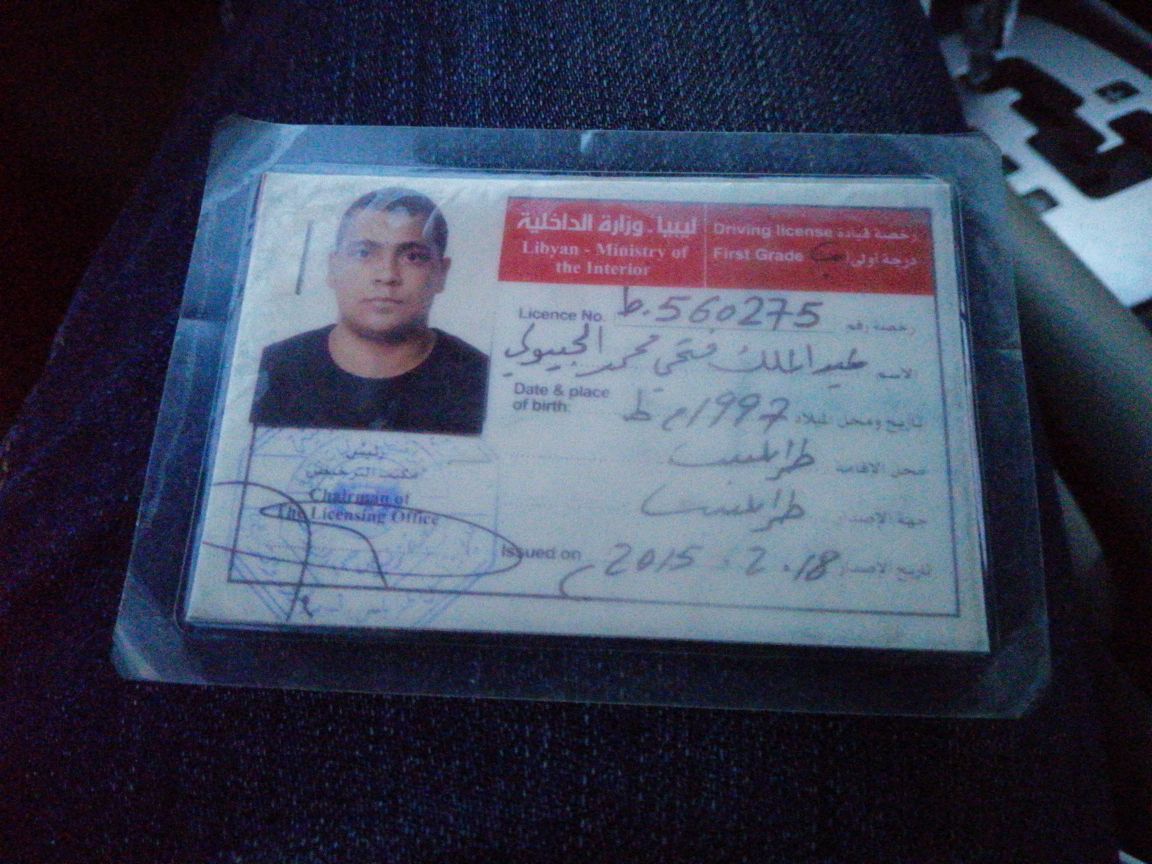 ليبيا - وزارة الداخلية
Libyan - Ministry of
the Interior
Driving license رخصة قيادة
First Grade درجة أولى
Licence No. ط.560275 رخصة رقم
الاسم عبد الملك فتحي محمد
Date & place
of birth:
تاريخ ومحل الميلاد 1997م ط
محل الاقامة طرابلس
جهة الاصدار طرابلس
Issued on 2015.2.18م تاريخ الاصدار
رئيس
مكتب الترخيص
Chairman of
The Licensing Office